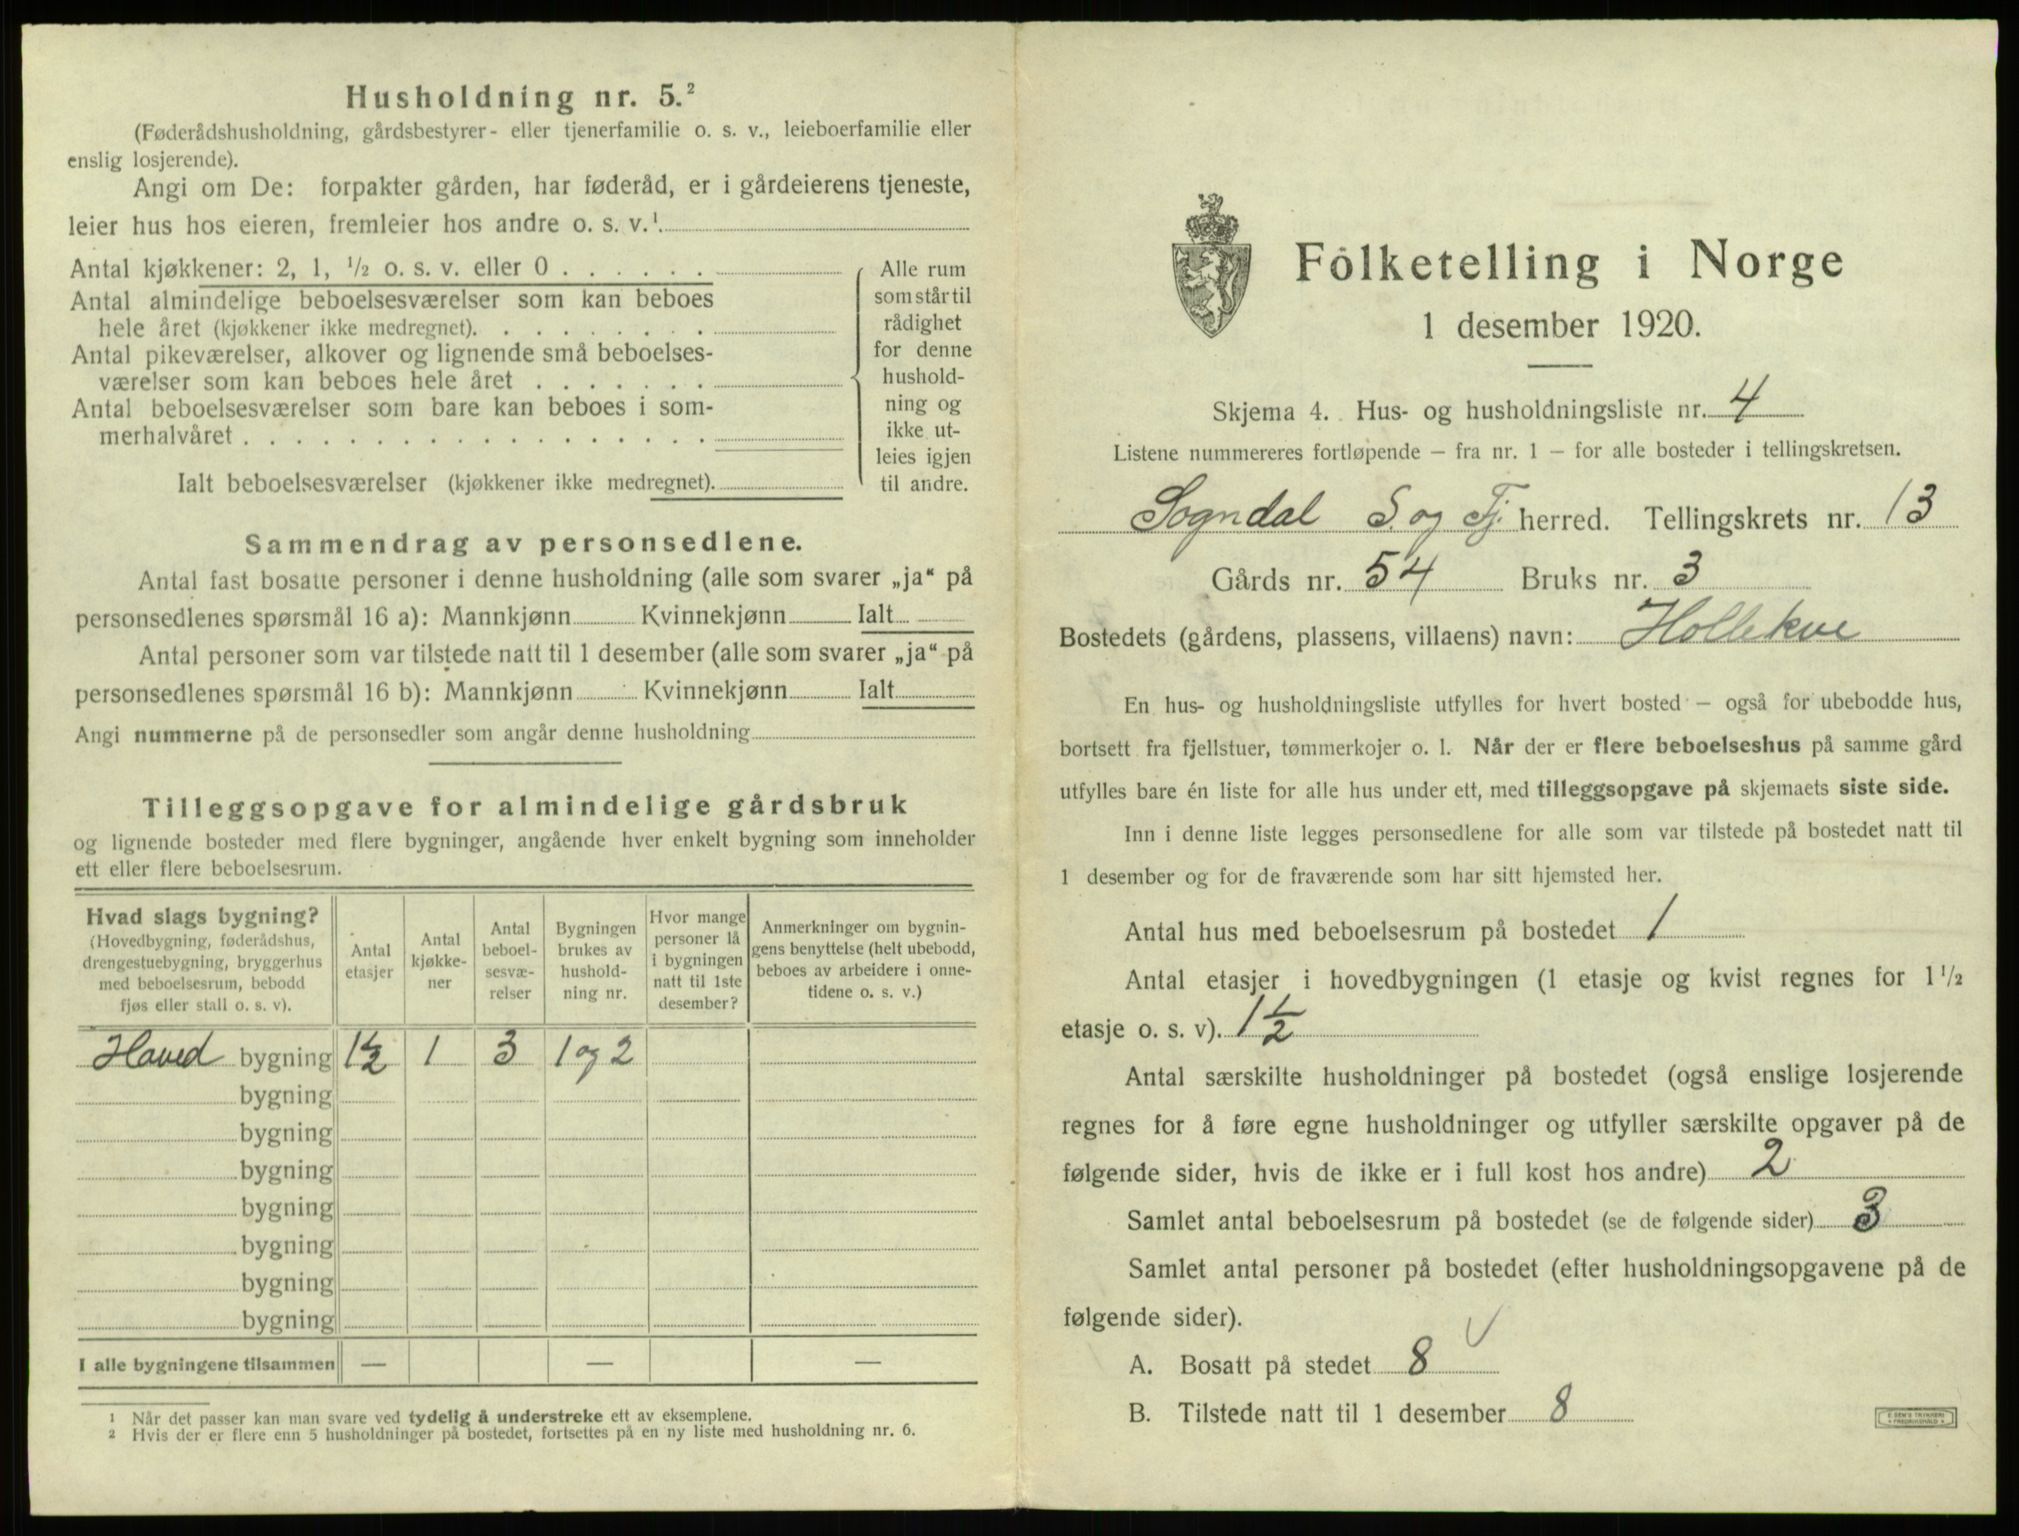 Husholdning nr. 5.²
(Føderådshusholdning, gårdsbestyrer- eller tjenerfamilie o. s. v., leieboerfamilie eller
enslig losjerende).
Angi om De: forpakter gården, har føderåd, er i gårdeierens tjeneste,
leier hus hos eieren, fremleier hos andre o. s. v.¹
Antal kjøkkener: 2, 1, ½ o. s. v. eller 0 . . . . . .
Antal almindelige beboelsesværelser som kan beboes
hele året (kjøkkener ikke medregnet). . . . . . . . .
Antal pikeværelser, alkover og lignende små beboelses-
værelser som kan beboes hele året . . . . . . .
Antal beboelsesværelser som bare kan beboes i som-
merhalvåret . . . . . . . . . . . . . . . . . .
Ialt beboelsesværelser (kjøkkener ikke medregnet).
Alle rum
som står til
rådighet
for denne
hushold-
ning og
ikke ut-
leies igjen
til andre.
Sammendrag av personsedlene.
Antal fast bosatte personer i denne husholdning (alle som svarer „ja“ på
personsedlenes spørsmål 16 a): Mannkjønn Kvinnekjønn Ialt
Antal personer som var tilstede natt til 1 desember (alle som svarer „ja“ på
personsedlenes spørsmål 16 b): Mannkjønn Kvinnekjønn Ialt
Angi nummerne på de personsedler som angår denne husholdning
Tilleggsopgave for almindelige gårdsbruk
og lignende bosteder med flere bygninger, angående hver enkelt bygning som inneholder
ett eller flere beboelsesrum.
Hvad slags bygning?
(Hovedbygning, føderådshus,
drengestuebygning, bryggerhus
med beboelsesrum, bebodd
fjøs eller stall o. s. v).
Antal
etasjer
Antal
kjøkke-
ner
Antal
beboel-
sesvæ-
relser
Bygningen
brukes av
hushold-
ning nr.
Hvor mange
personer lå
i bygningen
natt til 1ste
desember?
Anmerkninger om bygnin-
gens benyttelse (helt ubebodd,
beboes av arbeidere i onne-
tidene o. s. v.)
Hoved bygning 1½ 1 3 1 og 2
bygning
bygning
bygning
bygning
bygning
bygning
bygning
I alle bygningene tilsammen — — —
¹ Når det passer kan man svare ved tydelig å understreke ett av eksemplene.
² Hvis der er flere enn 5 husholdninger på bostedet, fortsettes på en ny liste med husholdning nr. 6.
Folketelling i Norge
1 desember 1920.
Skjema 4. Hus- og husholdningsliste nr. 4
Listene nummereres fortløpende – fra nr. 1 – for alle bosteder i tellingskretsen.
Sogndal S. og Fj. herred. Tellingskrets nr. 13
Gårds nr. 54 Bruks nr. 3
Bostedets (gårdens, plassens, villaens) navn: Hollekve
En hus- og husholdningsliste utfylles for hvert bosted – også for ubebodde hus,
bortsett fra fjellstuer, tømmerkojer o. l. Når der er flere beboelseshus på samme gård
utfylles bare én liste for alle hus under ett, med tilleggsopgave på skjemaets siste side.
Inn i denne liste legges personsedlene for alle som var tilstede på bostedet natt til
1 desember og for de fraværende som har sitt hjemsted her.
Antal hus med beboelsesrum på bostedet 1
Antal etasjer i hovedbygningen (1 etasje og kvist regnes for 1 ½
etasje o. s. v). 1½
Antal særskilte husholdninger på bostedet (også enslige losjerende
regnes for å føre egne husholdninger og utfyller særskilte opgaver på de
følgende sider, hvis de ikke er i full kost hos andre) 2
Samlet antal beboelsesrum på bostedet (se de følgende sider) 3
Samlet antal personer på bostedet (efter husholdningsopgavene på de
følgende sider).
A. Bosatt på stedet 8
B. Tilstede natt til 1 desember 8